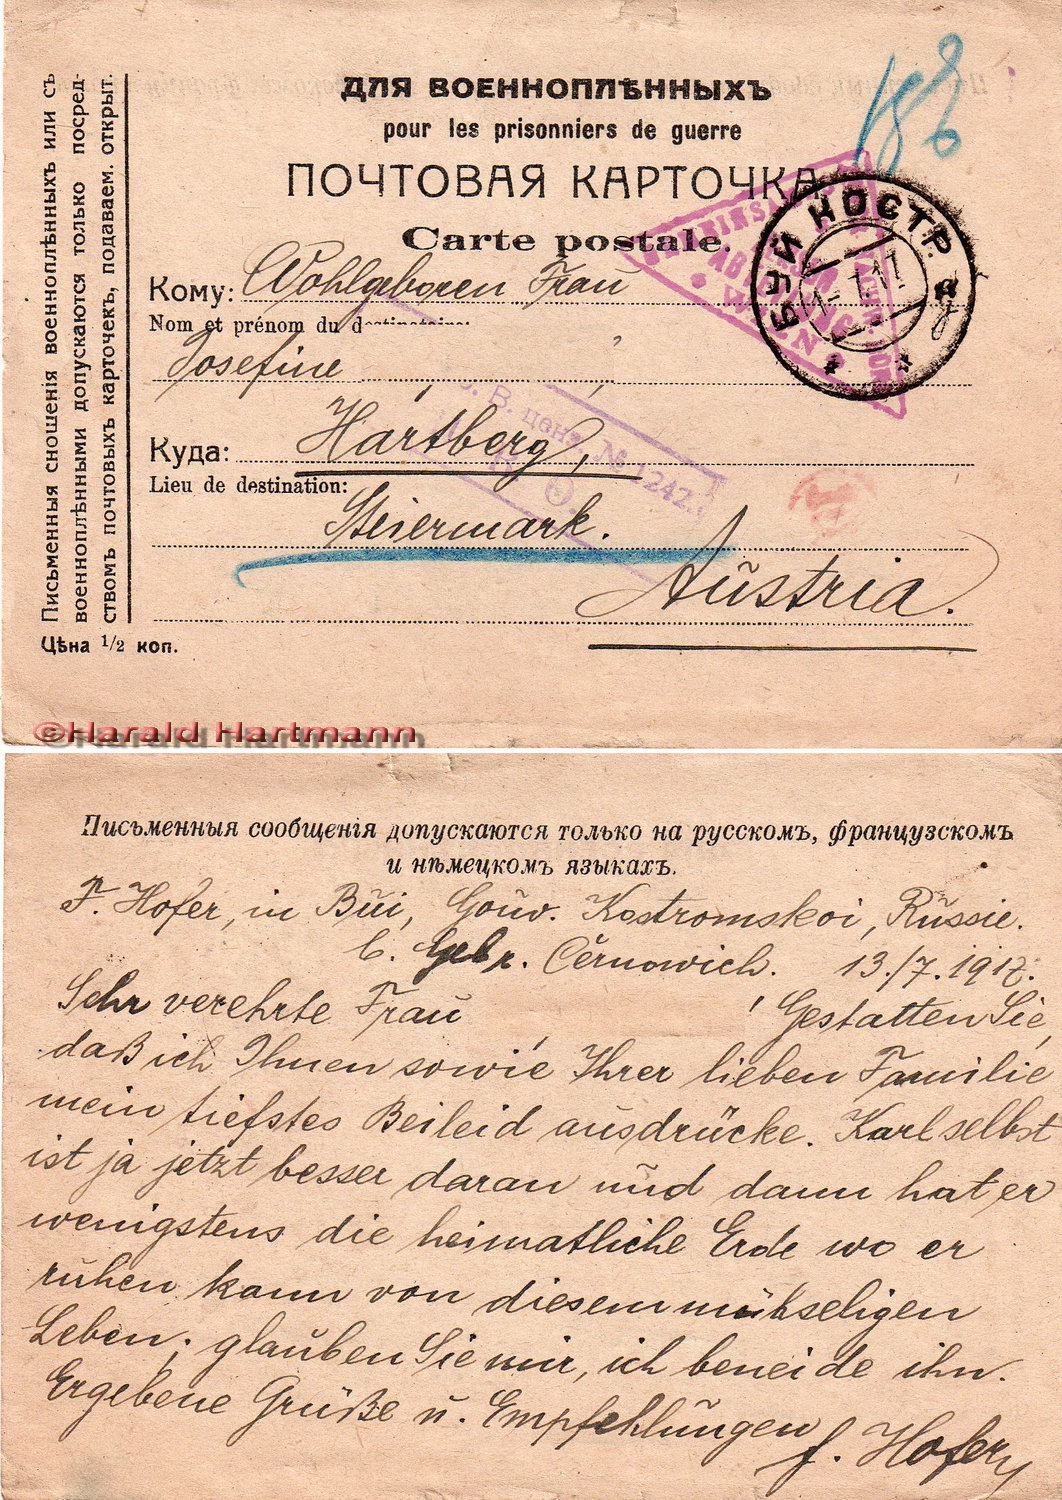 Письменныя сношенія военноплѣнныхъ или съ
военноплѣнными допускаются только посред-
ствомъ почтовыхъ карточекъ, подаваем. открыт.
ДЛЯ ВОЕННОПЛѢННЫХЪ
pour les prisonniers de guerre
ПОЧТОВАЯ КАРТОЧКА
Carte postale.
БУЙ КОСТР.
Кому: Wohlgeboren Frau
Nom et prénom du destinataire:
Josefine
В. ценз. № 1242.
Куда: Hartberg,
Lieu de destination:
Steiermark.
Austria.
Цѣна 1/2 коп.
©Harald Hartmann
Письменныя сообщенія допускаются только на русскомъ, французскомъ
и нѣмецкомъ языкахъ.
F. Hofer, in Bui, Gouv. Kostromskoi, Russie.
b. Gebr. Černowich. 13./7. 1917.
Sehr verehrte Frau! Gestatten Sie,
daß ich Ihnen sowie Ihrer lieben Familie
mein tiefstes Beileid ausdrücke. Karl selbst
ist ja jetzt besser daran und dann hat er
wenigstens die heimatliche Erde wo er
ruhen kann von diesem mühseligen
Leben; glauben Sie mir, ich beneide ihn.
Ergebene Grüße u. Empfehlungen
f. Hofer